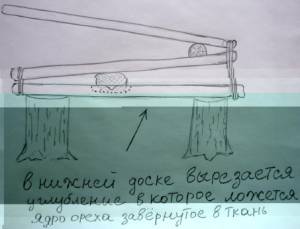 в нижней доске вырезается
углубление в которое ложется
ядро ореха завёрнутое в ткань